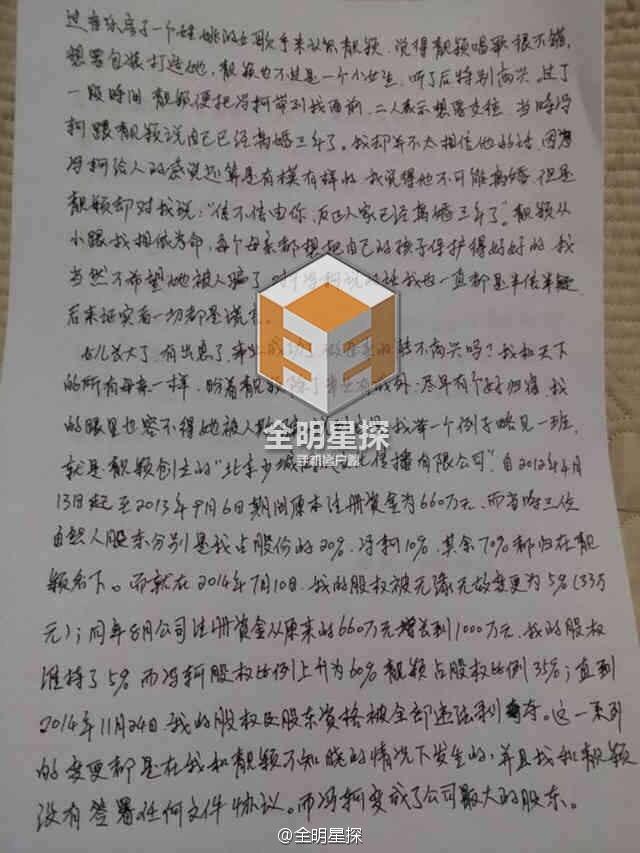 过音乐房了一个姓姚的女歌手来认识靓颖，说得靓颖唱歌很不错，
想要包装打造她，靓颖也不过是一个小女生，听了后特别高兴。过了
一段时间 靓颖便把冯柯带到我面前，二人表示想要交往，当时冯
柯跟靓颖说自己已经离婚三年了。我却并不太相信他的话，因为
冯柯给人的感觉还算是有模有样的，我觉得他不可能离婚，但是
靓颖却对我说："信不信由你，反正人家已经离婚三年了"。靓颖从
小跟我相依为命，每个母亲都想把自己的孩子保护得好好的，我
当然不希望她被人骗了，对于冯柯说的话我也一直都是半信半疑，
后来证实着一切都是谎言。
女儿长大了，有出息了，事业成功了，做母亲的能不高兴吗？我和天下
的所有母亲一样，盼着靓颖除了事业有成外，尽早有个好归宿，我
的眼里也容不得她被人欺 我举一个例子略见一班，
就是靓颖创立的"北京少城 文化传播有限公司"，自2012年4月
13日起至2013年9月6日期间原本注册资金为660万元，而当时三位
自然人股东分别是我占股份的20%，冯轲10%，其余70%都归在靓
颖名下。而就在2014年7月10日，我的股权被无缘无故变更为5%(33万
元)；同年8月公司注册资金从原来的660万元增长到1000万元，我的股权
维持了5%而冯轲股权比例上升为60%靓颖占股权比例35%；直到
2014年11月24日，我的股权及股东资格被全部违法剥夺。这一系列
的变更都是在我和靓颖不知晓的情况下发生的，并且我和靓颖
没有签署任何文件协议。而冯轲变成了公司最大的股东。
全明星探
手机客户端
@全明星探